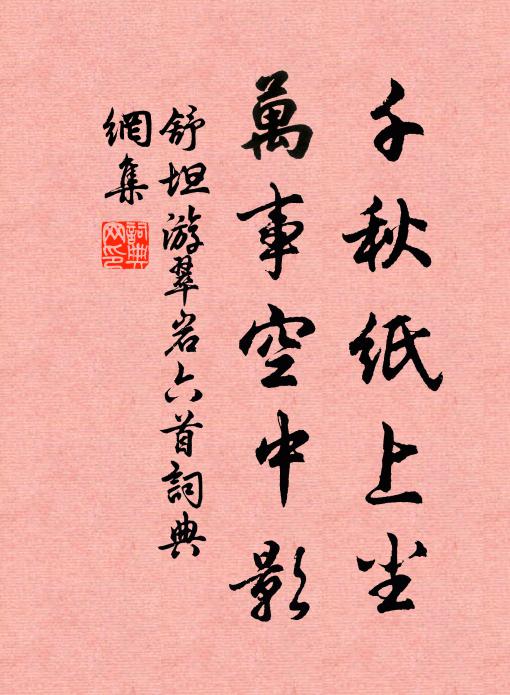 千秋紙上尘
萬事空中影
舒坦游翠岩六首詞典
網集
詞典
网印